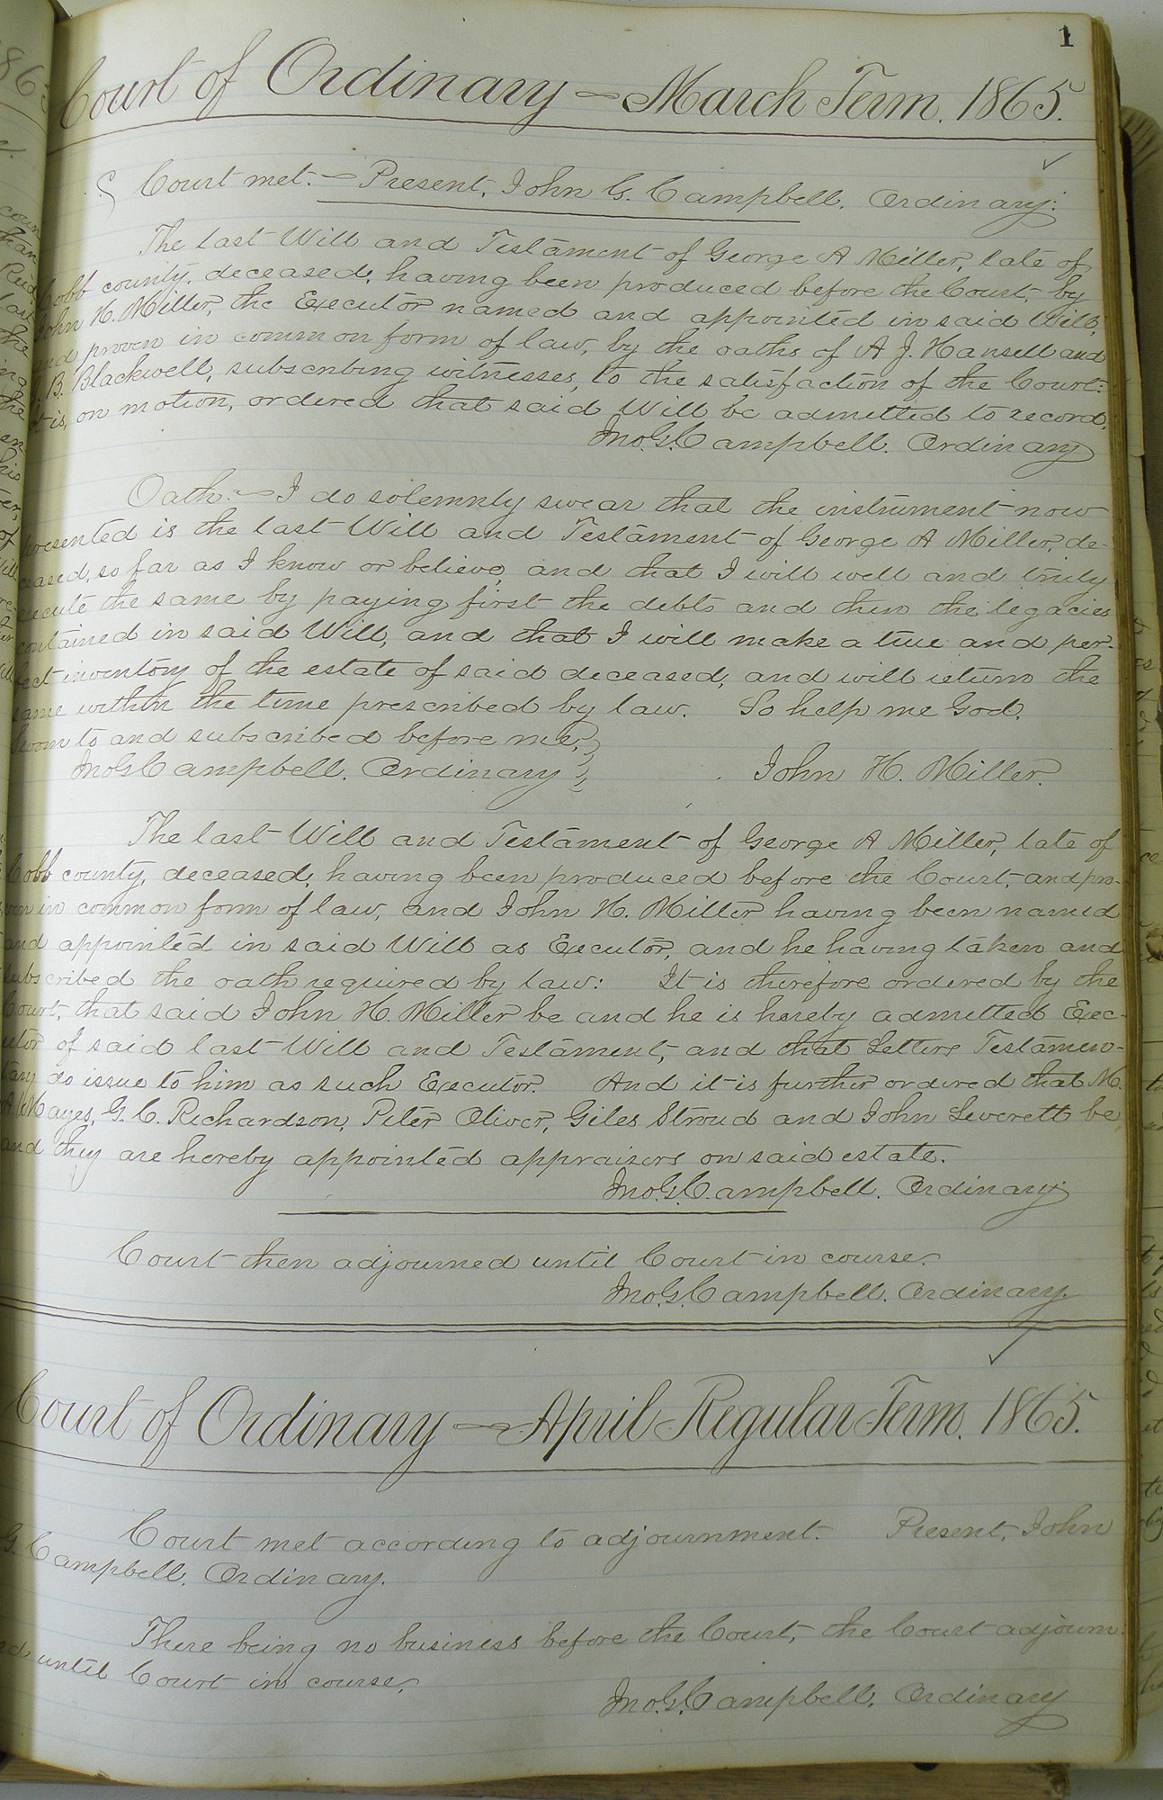 1
Court of Ordinary — March Term. 1865.
Court met. — Present, John G. Campbell. Ordinary:
The last Will and Testament of George A Miller, late of
Cobb county, deceased, having been produced before the Court, by
John H. Miller, the Executor named and appointed in said Will,
and proven in common form of law, by the oaths of A J. Hansell and
B. Blackwell, subscribing witnesses, to the satisfaction of the Court:
It is, on motion, ordered that said Will be admitted to record.
Jno. G. Campbell. Ordinary
Oath. — I do solemnly swear that the instrument now
presented is the last Will and Testament of George A Miller, de-
ceased, so far as I know or believe, and that I will well and truly
execute the same by paying first the debts and then the legacies
contained in said Will, and that I will make a true and per-
fect inventory of the estate of said deceased, and will return the
same within the time prescribed by law. So help me God.
Sworn to and subscribed before me,
Jno. G. Campbell. Ordinary John H. Miller.
The last Will and Testament of George A Miller, late of
Cobb county, deceased, having been produced before the Court, and pro-
ven in common form of law, and John H. Miller having been named
and appointed in said Will as Executor, and he having taken and
subscribed the oath required by law: It is therefore ordered by the
Court, that said John H. Miller be and he is hereby admitted Exec-
utor of said last Will and Testament, and that Letters Testamen-
tary do issue to him as such Executor. And it is further ordered that M.
Mayes, G. C. Richardson, Peter Oliver, Giles Stroud and John Leverett be
and they are hereby appointed appraisers on said estate.
Jno. G. Campbell. Ordinary
Court then adjourned until Court in course.
Jno. G. Campbell. Ordinary.
Court of Ordinary — April Regular Term. 1865.
Court met according to adjournment. Present, John
G. Campbell. Ordinary.
There being no business before the Court, the Court adjourn-
ed until Court in course.
Jno. G. Campbell. Ordinary